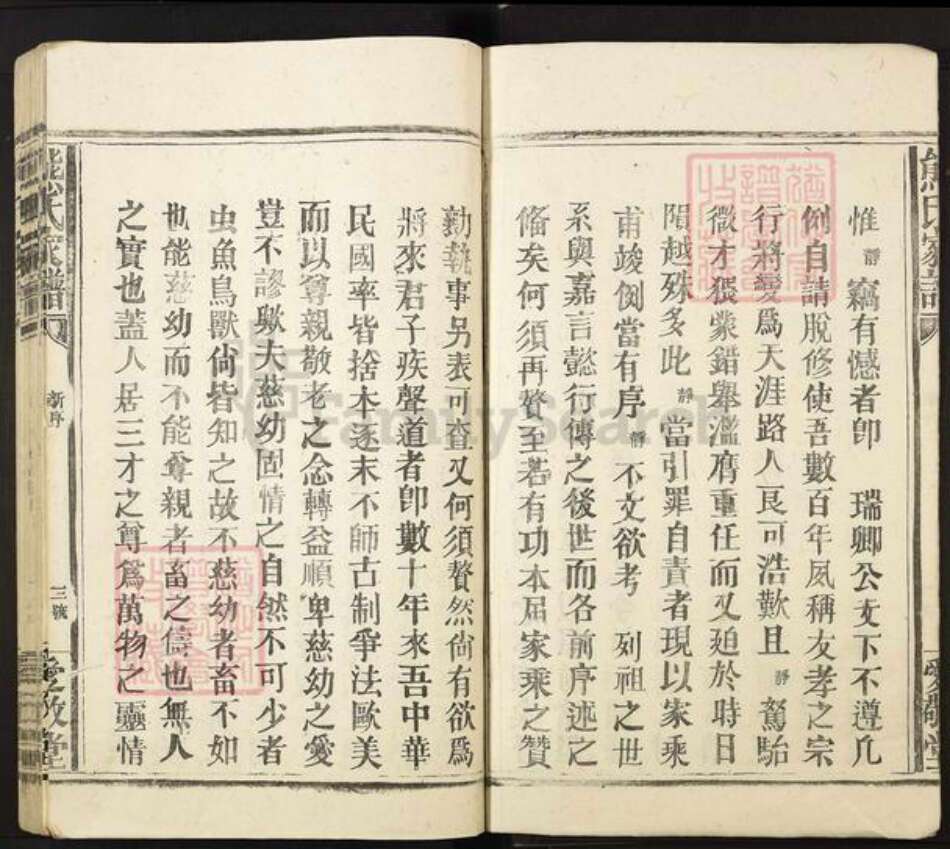 惟靜竊有憾者卽 瑞卿公支下不遵凡
例自請脫修使吾數百年夙稱友孝之宗
行將變爲天涯路人良可浩歎且靜駑駘
微才猥蒙錯舉濫膺重任而又廹於時日
隕越殊多此靜當引罪自責者現以家乘
甫竣例當有序靜不文欲考 列祖之世
系與嘉言懿行傳之後世而各前序述之
偹矣何須再贅至若有功本屆家乘之贊
勷執事另表可查又何須贅然尙有欲爲
將來君子疾聲道者卽數十年來吾中華
民國率皆捨本逐末不師古制爭法歐美
而以尊親敬老之念轉益順卑慈幼之愛
豈不謬歟夫慈幼固情之自然不可少者
虫魚鳥獸尙皆知之故不慈幼者畜不如
也能慈幼而不能尊親者畜之儔也無人
之實也蓋人居三才之尊爲萬物之靈情
熊氏家譜
新序
三號
愛敬堂
熊氏家譜
愛敬堂
FamilySearch